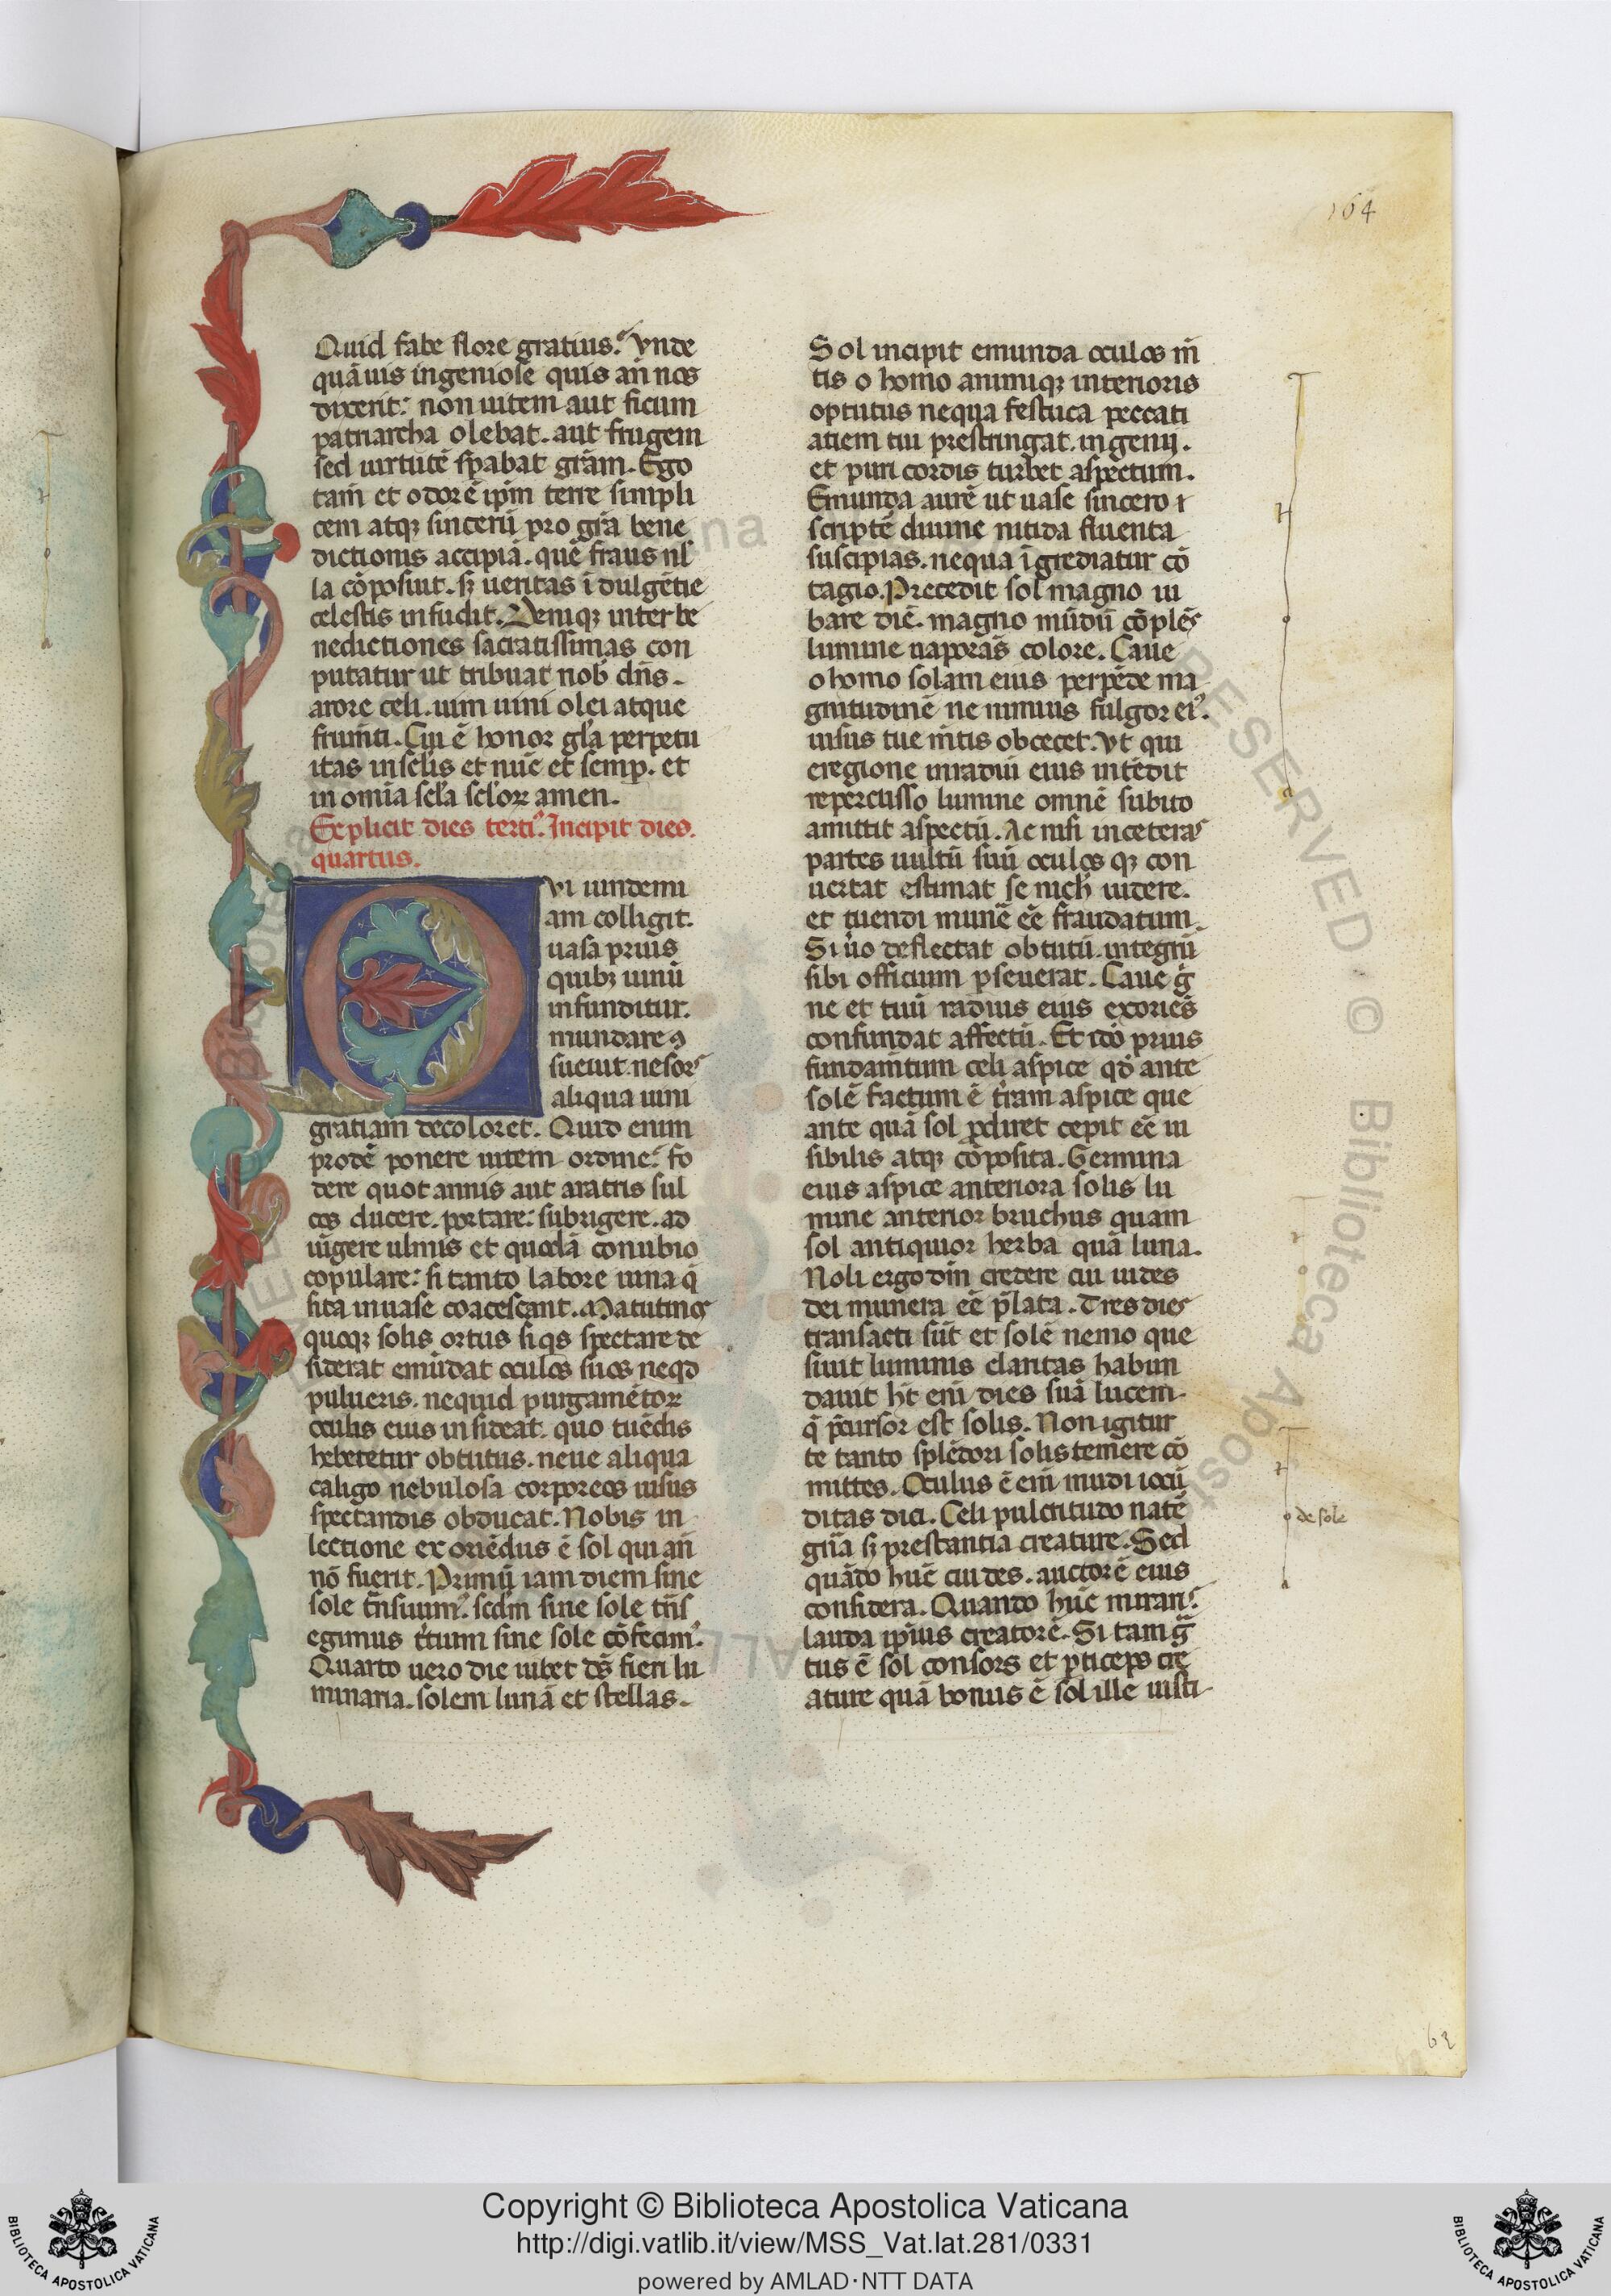 164
Quid fabe flore gratius? Vnde
quãuis ingeniose quis añ nos
dixerit: non uitem aut ficum
patriarcha olebat. aut frugem
sed uirtutẽ spabat grãm. Ego
tam̃ et odorẽ ip̃m terre simpli
cem atqꝫ sincerũ pro gr̃a bene
dictionis accipiã. quẽ fraus nł
la cõposiut. sꝫ ueritas ĩdulgẽtie
celestis infudit. Deniqꝫ inter be
nedictiones sacratissimas con
putatur ut tribuat nob dñs.
arore celi. uim uini olei atque
frumti. Cui ẽ honor gl̃a perpetu
itas insclis et nũc et semp. et
in omia scl̃a scl̃oꝝ amen.
Explicit dies terti᾿. Incipit dies.
quartus.
Qvi uindemi
am colligit.
uasa prius
quibꝫ uinũ
infunditur.
mundare 9
sueuit. ne sors
aliqua uini
gratiam decoloret. Quid enim
prodẽ ponere uitem ordine: fo
dere quot annis aut aratris sul
cos ducere. portare: subrigere. ad
iũgere ulmis et quodã conubio
copulare: si tanto labore uina q̃
sita in uase coacescant. Matutinos
quoqꝫ solis ortus siqs spectare de
siderat emũdat oculos suos neqd
pulueris. nequid purgamẽtoꝝ
oculis eius insideat. quo tuẽdis
hebetetur obtutus. neue aliqua
caligo nebulosa corporeos uisus
spectandis obducat. Nobis in
lectione ex oriẽdus ẽ sol qui añ
nõ fuerit. Primũ iam diem sine
sole tr̃nsiuim᾿. scdm sine sole trñs
egimus t̾tium sine sole cõfecim᾿.
Quarto uero die iubet ds̃ fieri lu
minaria. solem lunã et stellas.
Sol incipit emunda oculos m̃
tis o homo animiqꝫ interioris
optutus nequa festuca peccati
atiem tui prestringat. ingenij.
et puri cordis turbet aspectum.
Emunda aurẽ ut uase sincero ⁊
scriptẽ diuine nitida fluenta
suscipias. nequa ĩgrediatur cõ
tagio. Precedit sol magno iu
bare diẽ. magno mũdũ cõplẽs
lumine uaporãs colore. Caue
o homo solam eius perpẽde ma
gnitudinẽ ne nimius fulgor ei᾿.
uisus tue m̃tis obcecet. vt qui
eregione inradiui eius intẽdit
repercusso lumine omnẽ subito
amittit aspectũ. Ac nisi inceteras
partes uultũ suũ oculos qꝫ con
uertat estimat se nich̾ uidere.
et tuendi munẽ eẽ fraudatum.
Si u̾o deflectat obtutũ. integrũ
sibi officium pseuerat. Caue g̾
ne et tuũ radius eius exoriẽs
confundat affectũ. Et idõ prius
fundam̃tum celi aspice qd̾ ante
solẽ factum ẽ t̾ram aspice que
ante quã sol pdiret cepit eẽ ui
sibilis atqꝫ cõposita. Germina
eius aspice anteriora solis lu
mine anterior bruchus quam
sol antiquior herba quã luna.
Noli ergo dm̃ credere cui uides
dei munera eẽ p̃lata. Tres dies
transacti sũt et solẽ nemo que
siuit luminis claritas habun
dauit h̾t eni dies suã lucem
q̃ p̃cursor est solis. Non igitur
te tanto splẽdori solis temere cõ
mittes. Oculus ẽ eni mũdi iocũ
ditas diei. Celi pulcritudo natẽ
grĩa sꝫ prestantia creature. Sed
quãdo hũc cui des. auctorẽ eius
considera. Quando hũc miran᾿.
lauda ip̃ius creatorẽ. Si tam g̃
tus ẽ sol consors et pticeps cre
ature quã bonus ẽ sol ille iusti
de sole
63
Copyright © Biblioteca Apostolica Vaticana
http://digi.vatlib.it/view/MSS_Vat.lat.281/0331
powered by AMLAD·NTT DATA
BIBLIOTECA APOSTOLICA VATICANA
BIBLIOTECA APOSTOLICA VATICANA